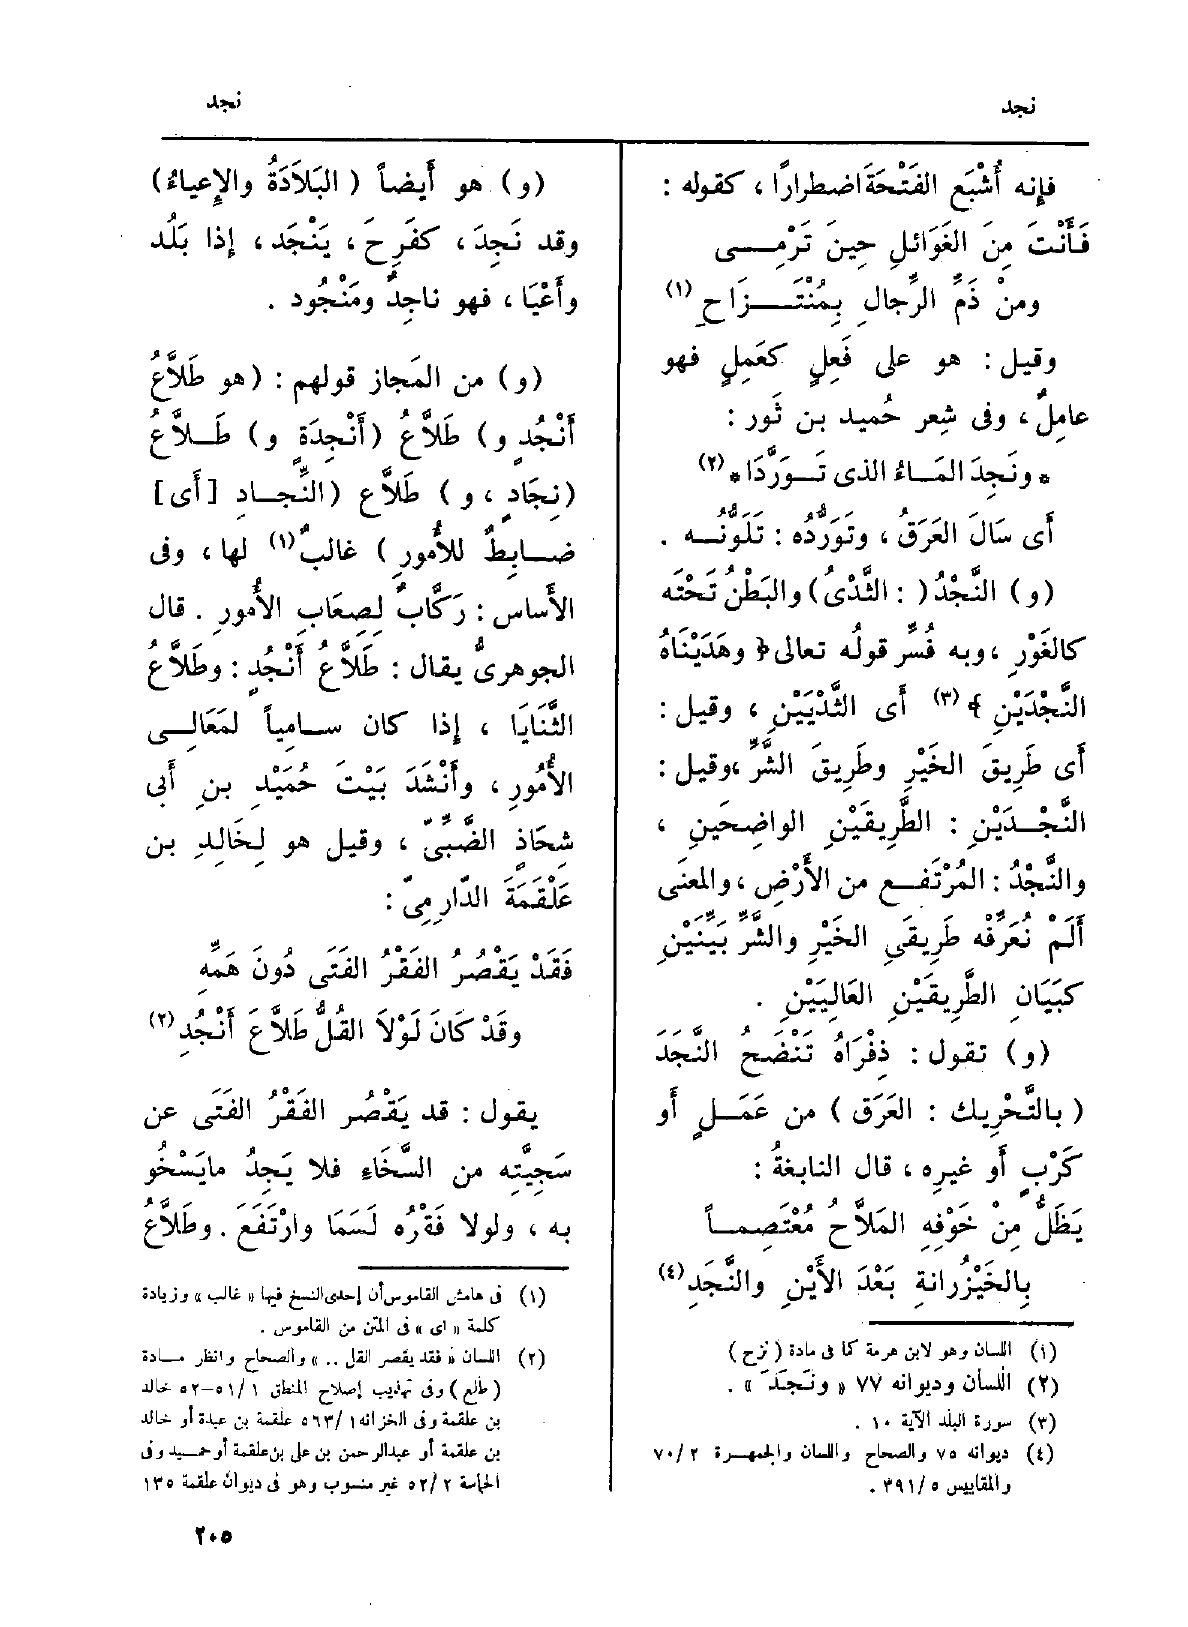 نجد
نجد
فإنه أُشْبَع الفَتْحَةَ اضطرارًا ، كقوله :
فَأَنْتَ مِنَ الغَوَائلِ حِينَ تَرْمِـى
ومنْ ذَمِّ الرِّجالِ بِمُنْتَـزَاحِ (١)
وقيل : هو على فَعِلٍ كعَمِلٍ فهو
عامِلٌ ، وفى شِعر حُميد بن ثَور :
* ونَجِدَ المَـاءُ الذى تَـوَرَّدَا * (٢)
أى سَالَ العَرَقُ ، وتَوَرُّدُه : تَلَوُّنُـه .
(و) النَّجْدُ ( : الثَّدْىُ ) والبَطْنُ تَحْتَه
كالغَوْرِ ، وبه فُسِّر قولُه تعالى ﴿ وهَدَيْنَاهُ
النَّجْدَيْنِ ﴾ (٣) أى الثَّدْيَيْنِ ، وقيل :
أى طَرِيقَ الخَيْرِ وطَرِيقَ الشَّرِّ ، وقيل :
النَّجْـدَيْنِ : الطَّرِيقَيْنِ الواضِحَينِ ،
والنَّجْدُ : المُرْتَفِـع من الأَرْضِ ، والمعنَى
أَلَمْ نُعَرِّفْه طَرِيقَىِ الخَيْرِ والشَّرِّ بَيِّنَيْنِ
كبَيَانِ الطَّرِيقَيْنِ العَالِيَيْنِ .
(و) تقول : ذِفْرَاهُ تَنْضَحُ النَّجَدَ
( بالتَّحْرِيك : العَرَق ) من عَمَـلٍ أَو
كَرْبٍ أَو غيرِه ، قال النابغةُ :
يَظَلُّ مِنْ خَوْفِه المَلاَّحُ مُعْتَصِمـاً
بِالخَيْزُرانةِ بَعْدَ الأَيْنِ والنَّجَدِ (٤)
(١) اللسان وهو لابن هرمة كما فى مادة ( نزح )
(٢) اللسان وديوانه ٧٧ « ونَجَدَ » .
(٣) سورة البلد الآية ١٠ .
(٤) ديوانه ٧٥ والصحاح واللسان والجمهـرة ٢ /٧٠
والمقاييس ٥ /٣٩١ .
(و) هو أَيضاً ( البَلاَدَةُ والإِعياءُ )
وقد نَجِدَ ، كفَرِحَ ، يَنْجَد ، إِذا بَلُد
وأَعْيَا ، فهو ناجِدٌ ومَنْجُود .
(و) من المَجاز قولهم : ( هو طَلاَّعُ
أَنْجُدٍ و) طَلاَّعُ (أَنْجِدَةٍ و) طَـلاَّعُ
(نِجَادٍ ، و) طَلاَّع (النِّجَـادِ [أَى]
ضَـابِطٌ للأُمورِ ) غالبٌ (١) لها ، وفى
الأَساس : رَكَّابٌ لِصِعَابِ الأُمورِ . قال
الجوهرىُّ يقال : طَلاَّعُ أَنْجُدٍ : وطَلاَّعُ
الثَّنَايَا ، إِذا كان سـامِياً لمَعَالِـى
الأُمُورِ ، وأَنْشَدَ بَيْتَ حُمَيْدِ بنِ أَبى
شِحَاذٍ الضَّبِّىِّ ، وقيل هو لِخَالِدِ بن
عَلْقَمَةَ الدَّارِمِىِّ :
فَقَدْ يَقْصُرُ الفَقْرُ الفَتَى دُونَ هَمِّهِ
وقَدْ كَانَ لَوْلاَ القُلُّ طَلاَّعَ أَنْجُدِ (٢)
يقول : قد يَقْصُر الفَقْرُ الفَتَى عن
سَجِيَّتِه من السَّخَاءِ فلا يَجِدُ مايَسْخُو
به ، ولولا فَقْرُه لَسَمَا وارْتَفَعَ . وطَلاَّعُ
(١) فى هامش القاموس أن إحدى النسخ فيها « غالب » وزيادة
كلمة « اى » فى المتن من القاموس .
(٢) اللسان « فقد يقصر القل .. » والصحاح وانظر مـادة
(طلع) وفى تهذيب إصلاح المنطق ١ /٥١–٥٢ خالد
بن علقمة وفى الخزانه ١ /٥٦٣ علقمة بن عبدة أو خالد
بن علقمة أو عبدالرحمن بن على بن علقمة أو حميـد وفى
الحماسة ٢ /٥٢ غير منسوب وهو فى ديوان علقمة ١٣٥
٢٠٥